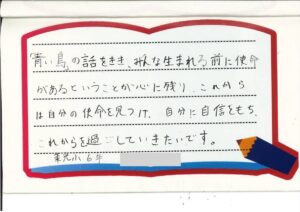 「青い鳥」の話をきき、みんな生まれる前に使命
があるということが心に残り、これから
は自分の使命を見つけ、自分に自信をもち、
これからを過ごしていきたいです。
小6年